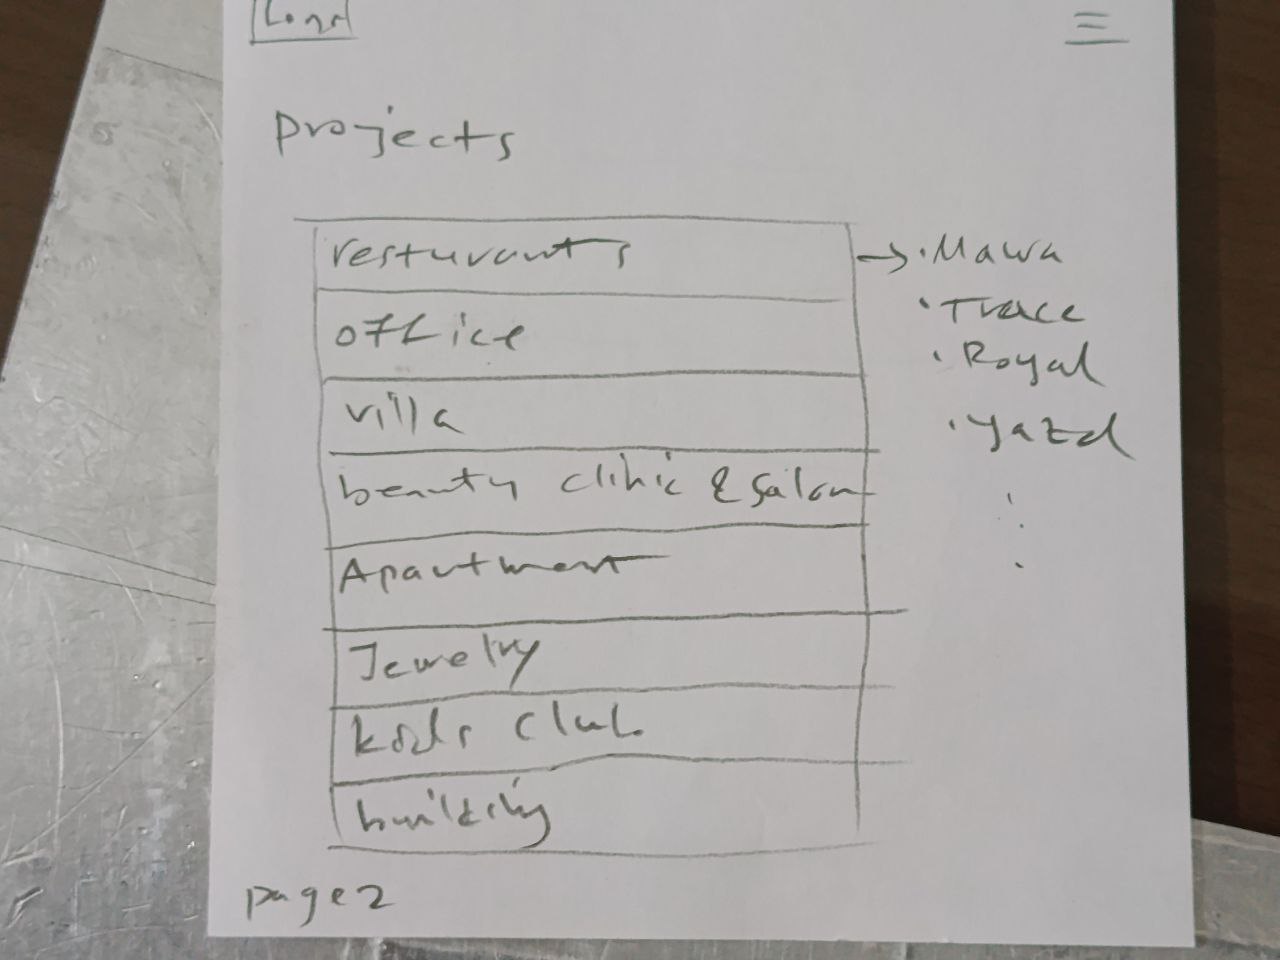 Logo
projects
resturants
→ • Mawa
• Trace
• Royal
• Yazd
office
villa
beauty clinic & salon
Apartment
Jewelry
kids club
building
page 2